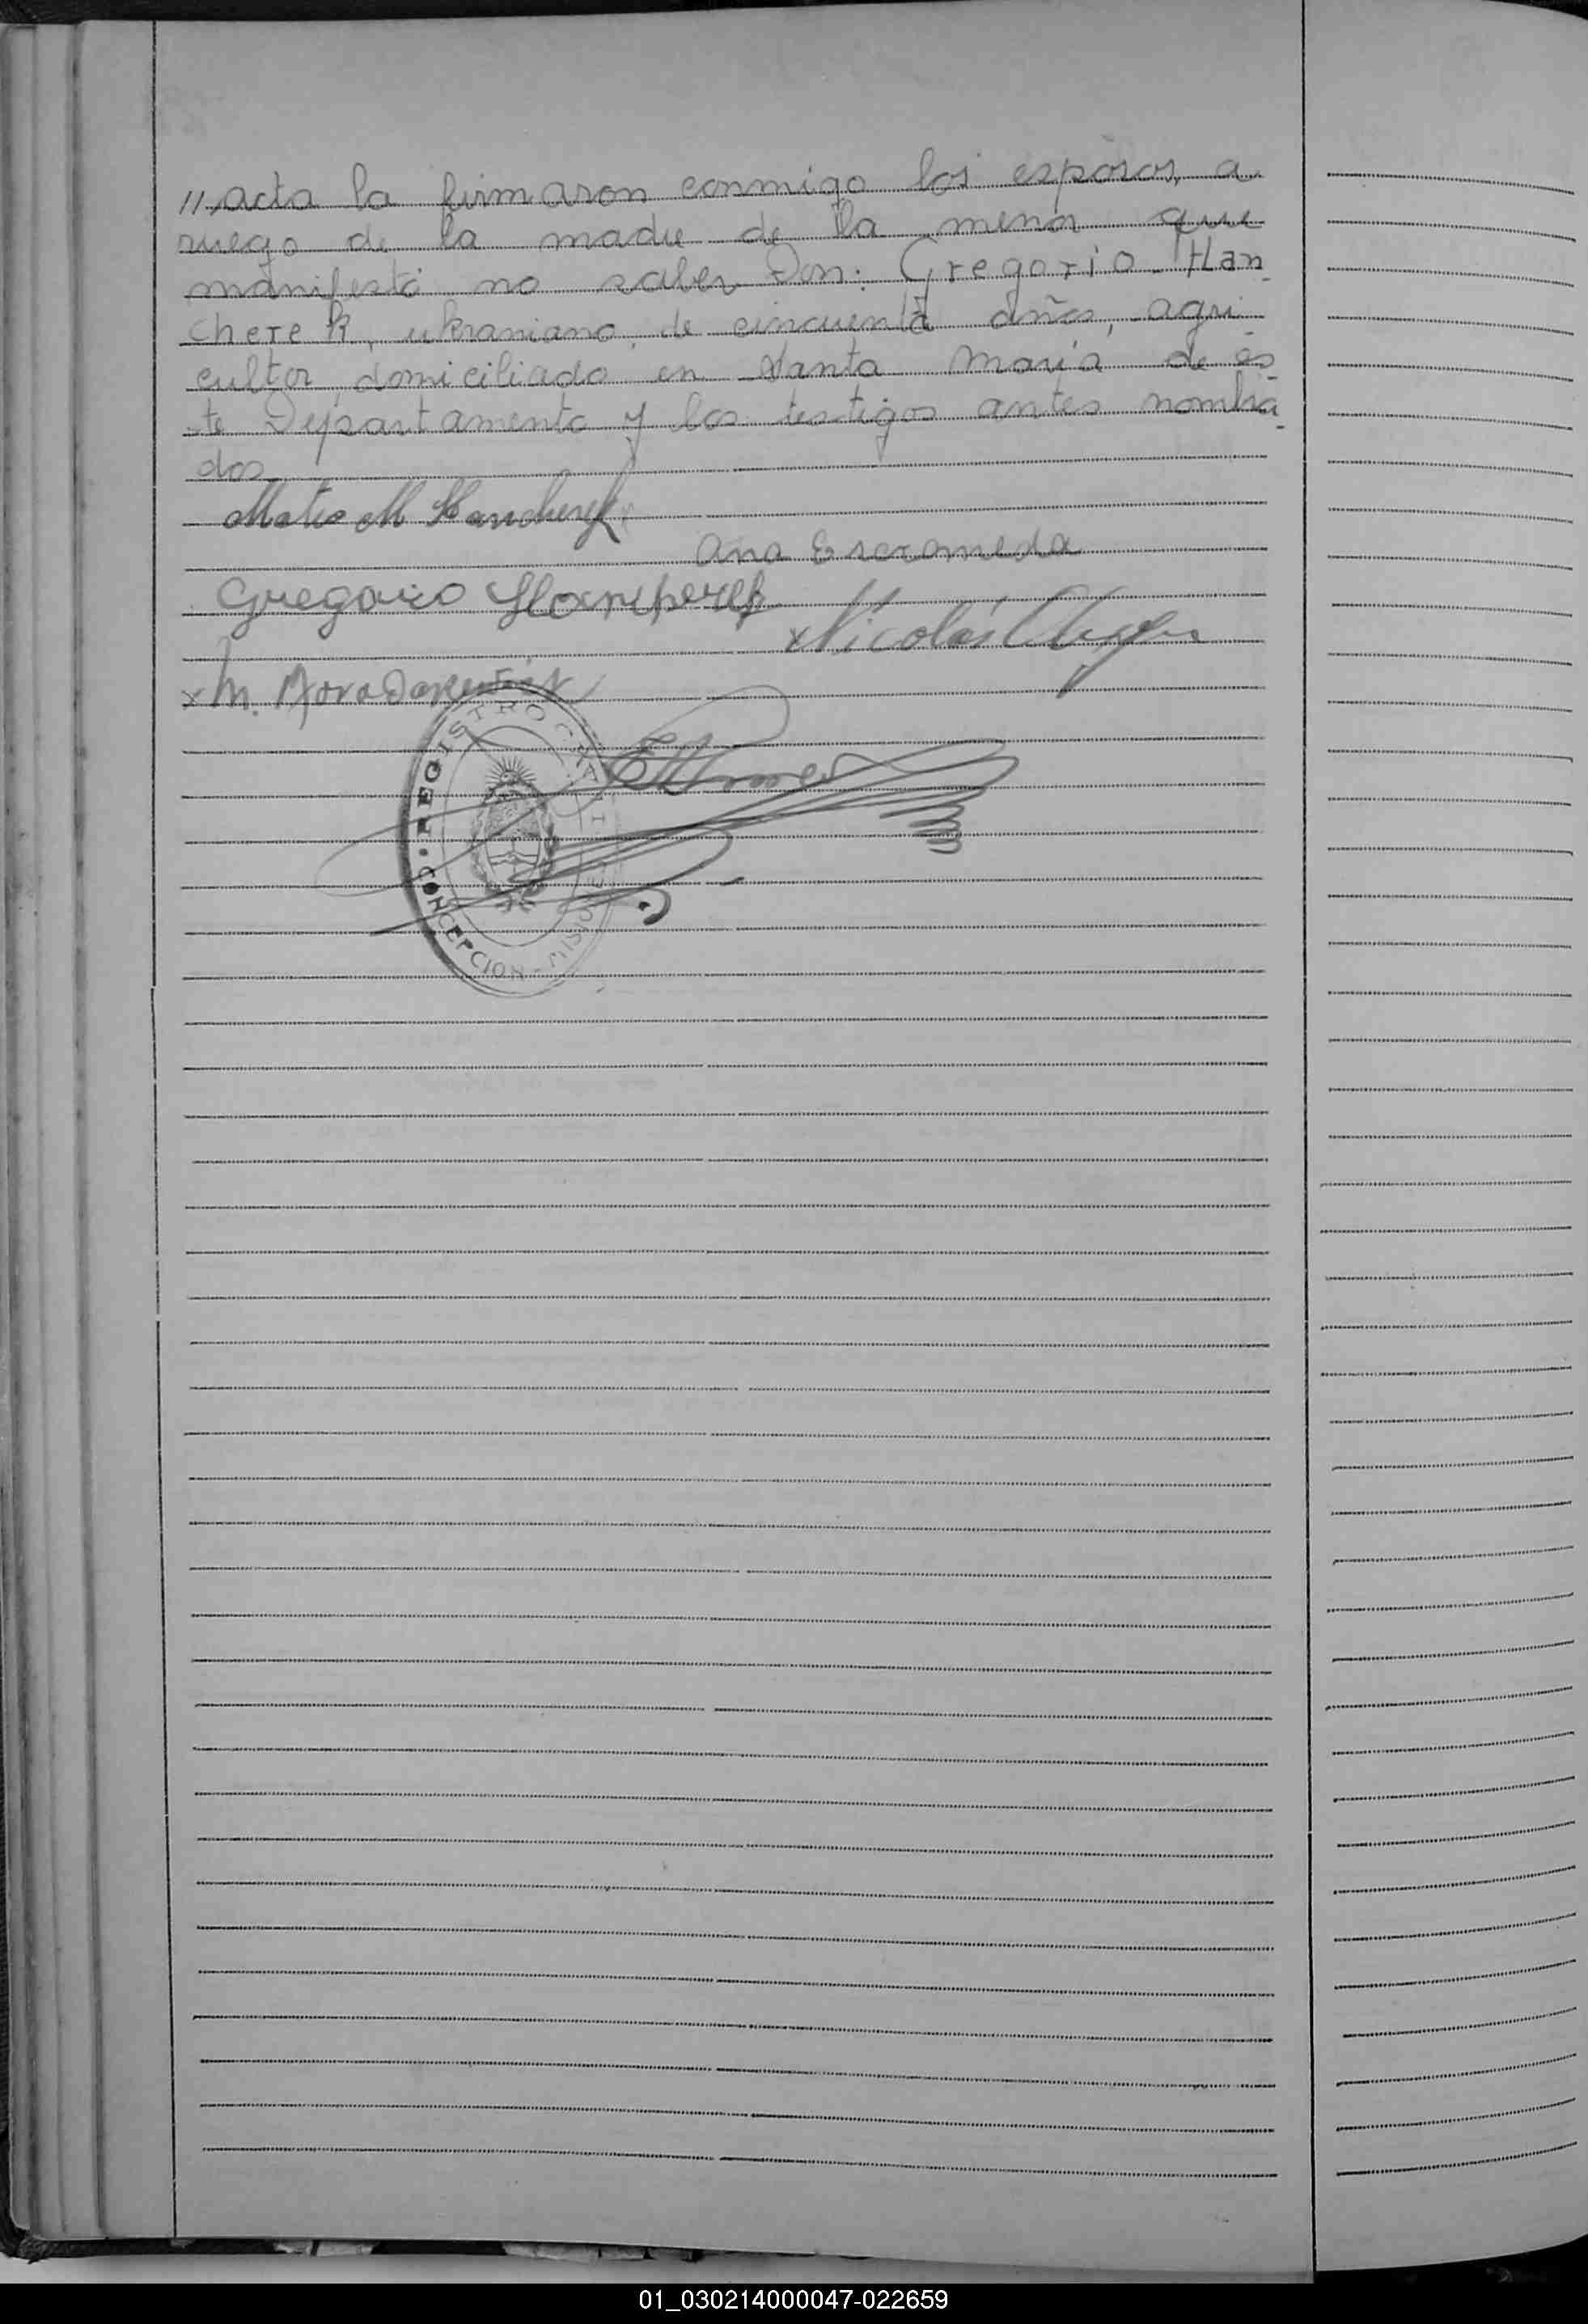 //acta la firmaron conmigo los esposos, a
ruego de la madre de la menor que
manifestó no saber Don: Gregorio Han
cherek, ukraniano, de cincuenta años, agri
cultor, domiciliado en Santa María de es
te Departamento y los testigos antes nombra
dos
Mateo M Hancherek
Ana Escromeda
Gregorio
x Nicolás
x M.
REGISTRO CIVIL
CONCEPCION - MISIONES
01_030214000047-022659